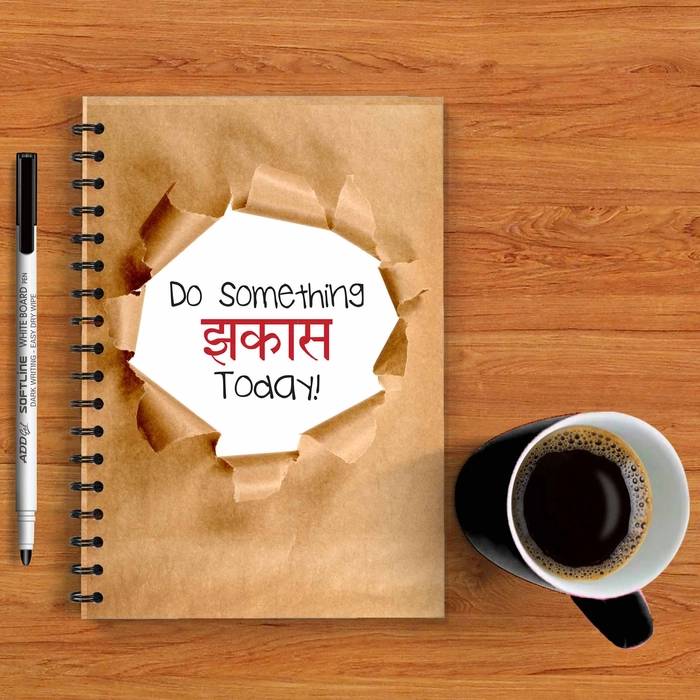 Do Something
झकास
Today!
ADD Gel SOFTLINE WHITE BOARD PEN
DARK WRITING - EASY DRY WIPE